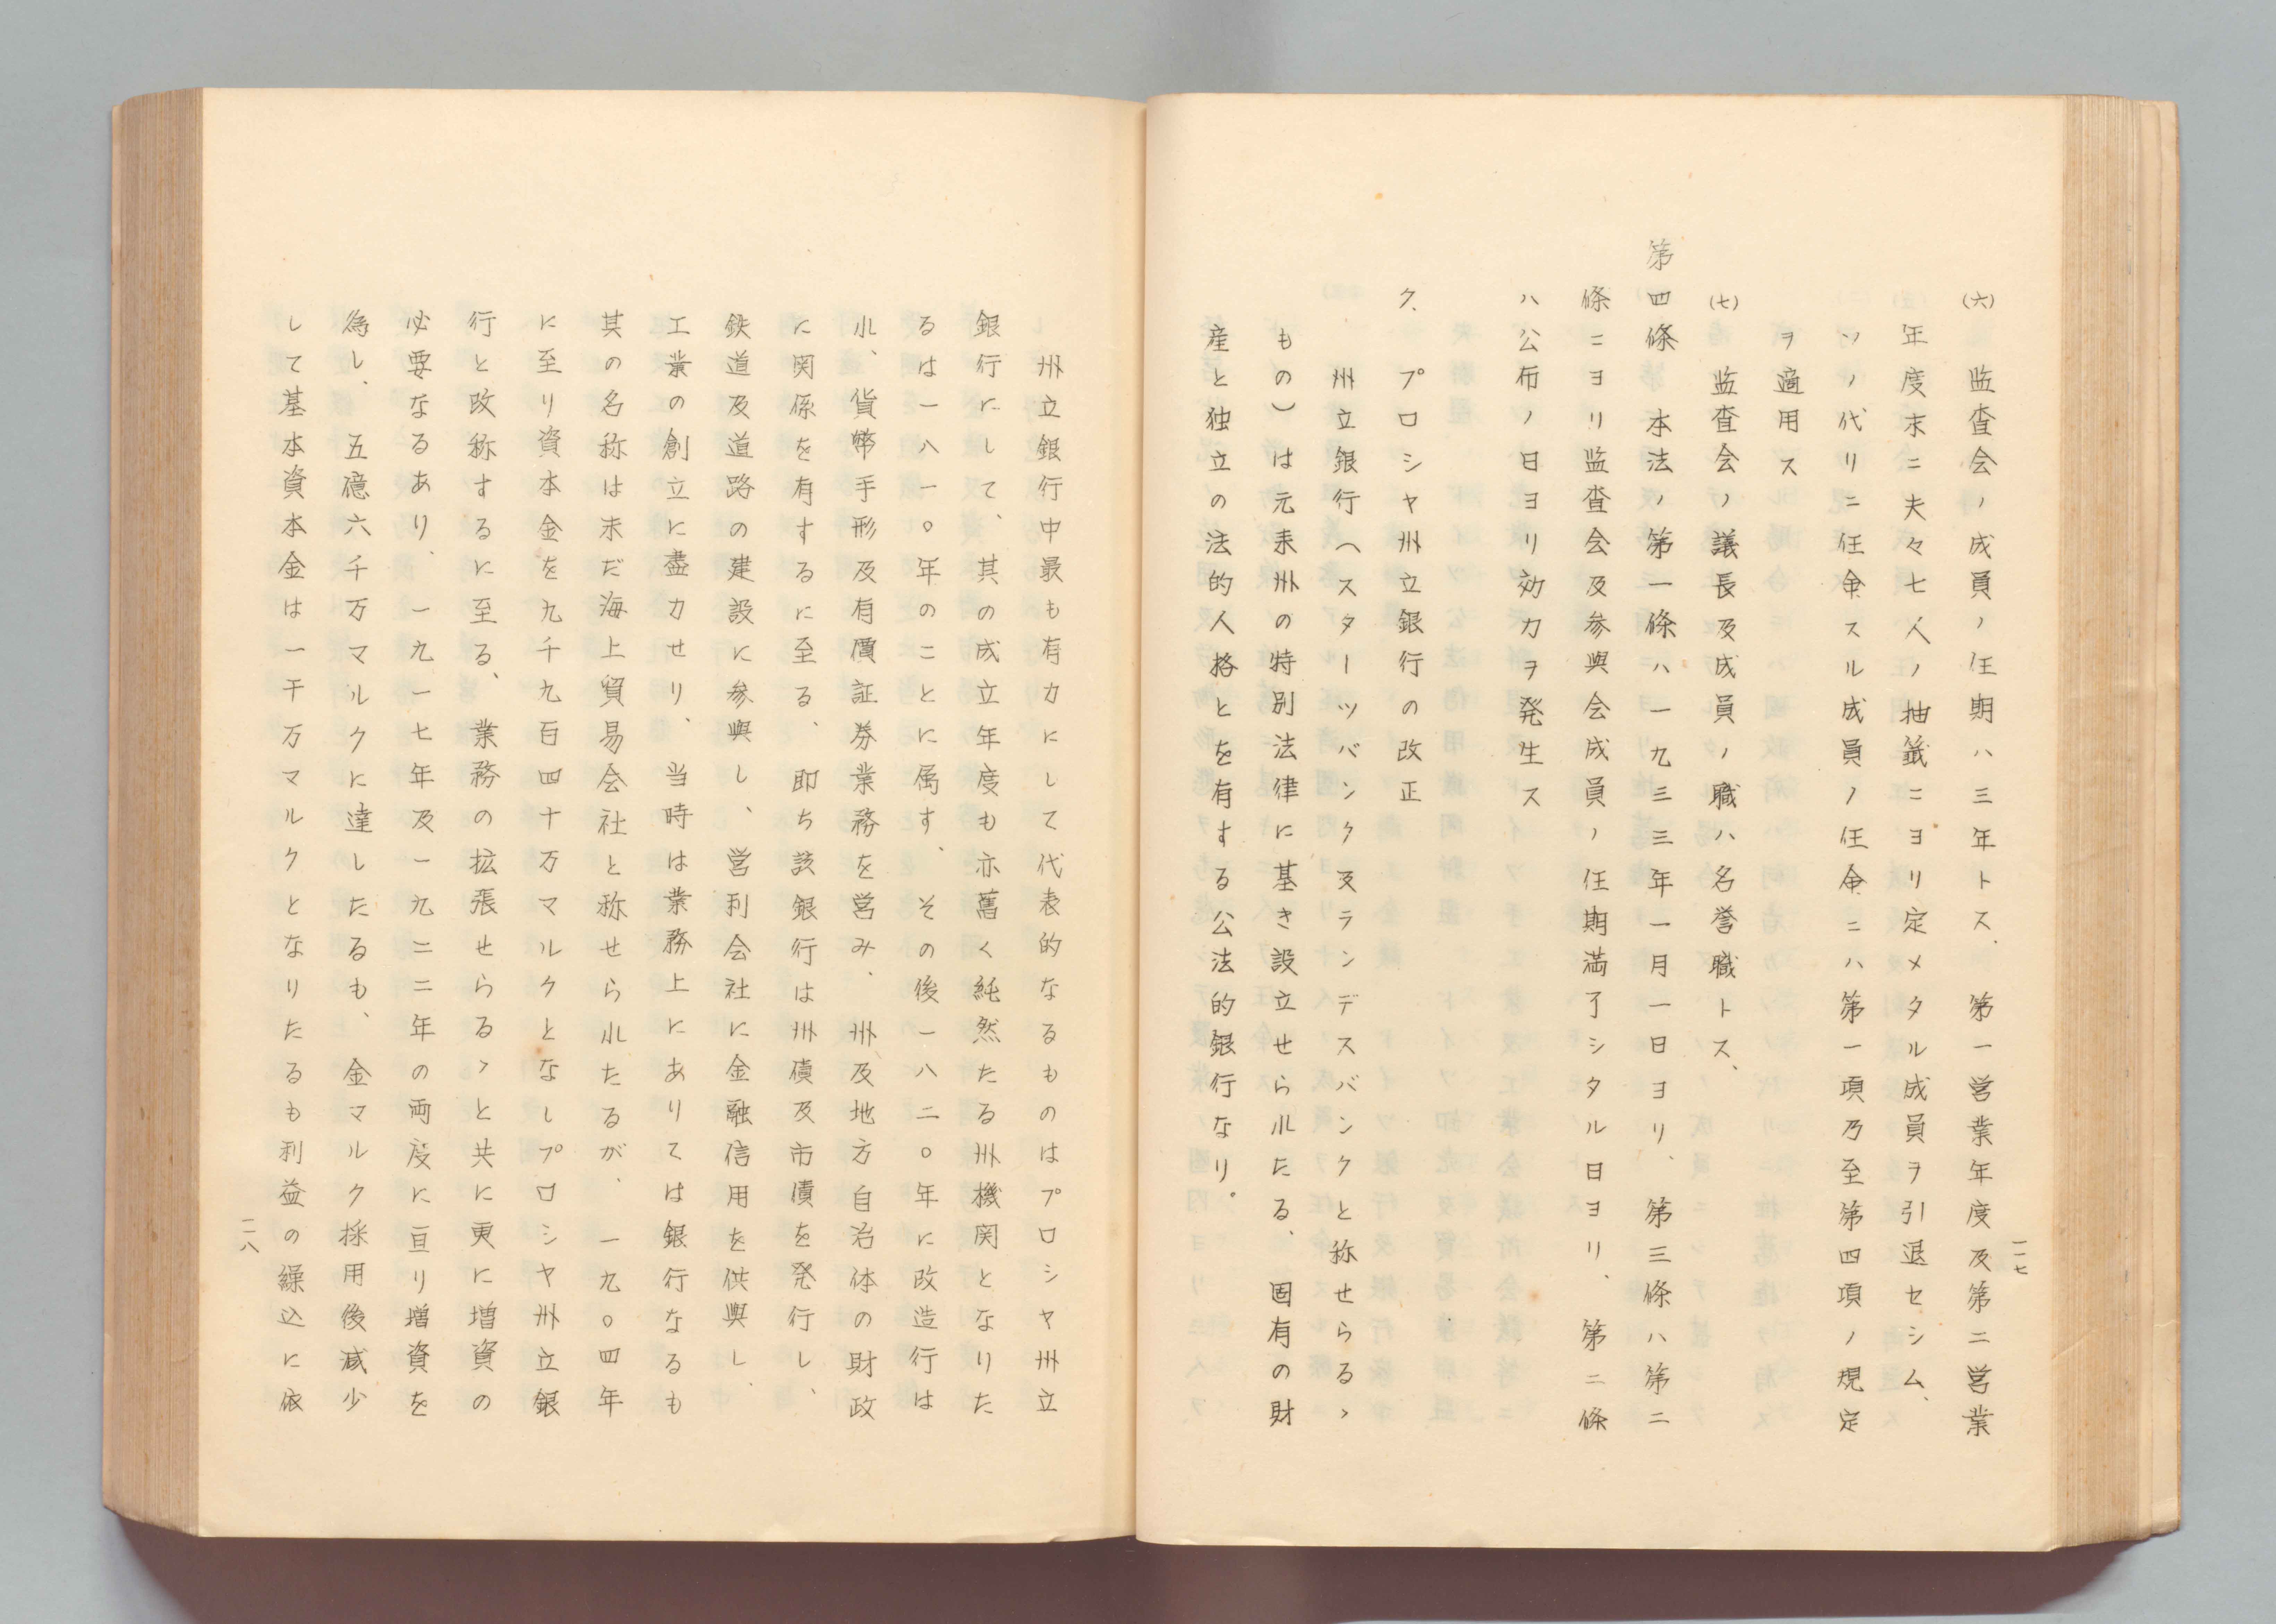 一一七
(六) 監査会ノ成員ノ任期ハ三年トス、第一営業年度及第二営業
年度末ニ夫々七人ノ抽籤ニヨリ定メタル成員ヲ引退セシム、
ソノ代リニ任命スル成員ノ任命ニハ第一項乃至第四項ノ規定
ヲ適用ス
(七) 監査会ノ議長及成員ノ職ハ名誉職トス、
第四條 本法ノ第一條ハ一九三三年一月一日ヨリ、第三條ハ第二
條ニヨリ監査会及参與会成員ノ任期満了シタル日ヨリ、第二條
ハ公布ノ日ヨリ効力ヲ発生ス
ク、プロシヤ州立銀行の改正
州立銀行(スターツバンク又ランデスバンクと称せらるゝ
もの)は元来州の特別法律に基き設立せられたる、固有の財
産と独立の法的人格とを有する公法的銀行なり。
州立銀行中最も有力にして代表的なるものはプロシヤ州立
銀行にして、其の成立年度も亦舊く純然たる州機関となりた
るは一八一〇年のことに属す、その後一八二〇年に改造行は
れ、貨幣手形及有價証券業務を営み、州及地方自治体の財政
に関係を有するに至る、即ち該銀行は州債及市債を発行し、
鉄道及道路の建設に参與し、営利会社に金融信用を供與し、
工業の創立に盡力せり、当時は業務上にありては銀行なるも
其の名称は未だ海上貿易会社と称せられたるが、一九〇四年
に至り資本金を九千九百四十万マルクとなしプロシヤ州立銀
行と改称するに至る、業務の拡張せらるゝと共に更に増資の
必要なるあり、一九一七年及一九二二年の両度に亘り増資を
為し、五億六千万マルクに達したるも、金マルク採用後減少
して基本資本金は一千万マルクとなりたるも利益の繰込に依
一一八